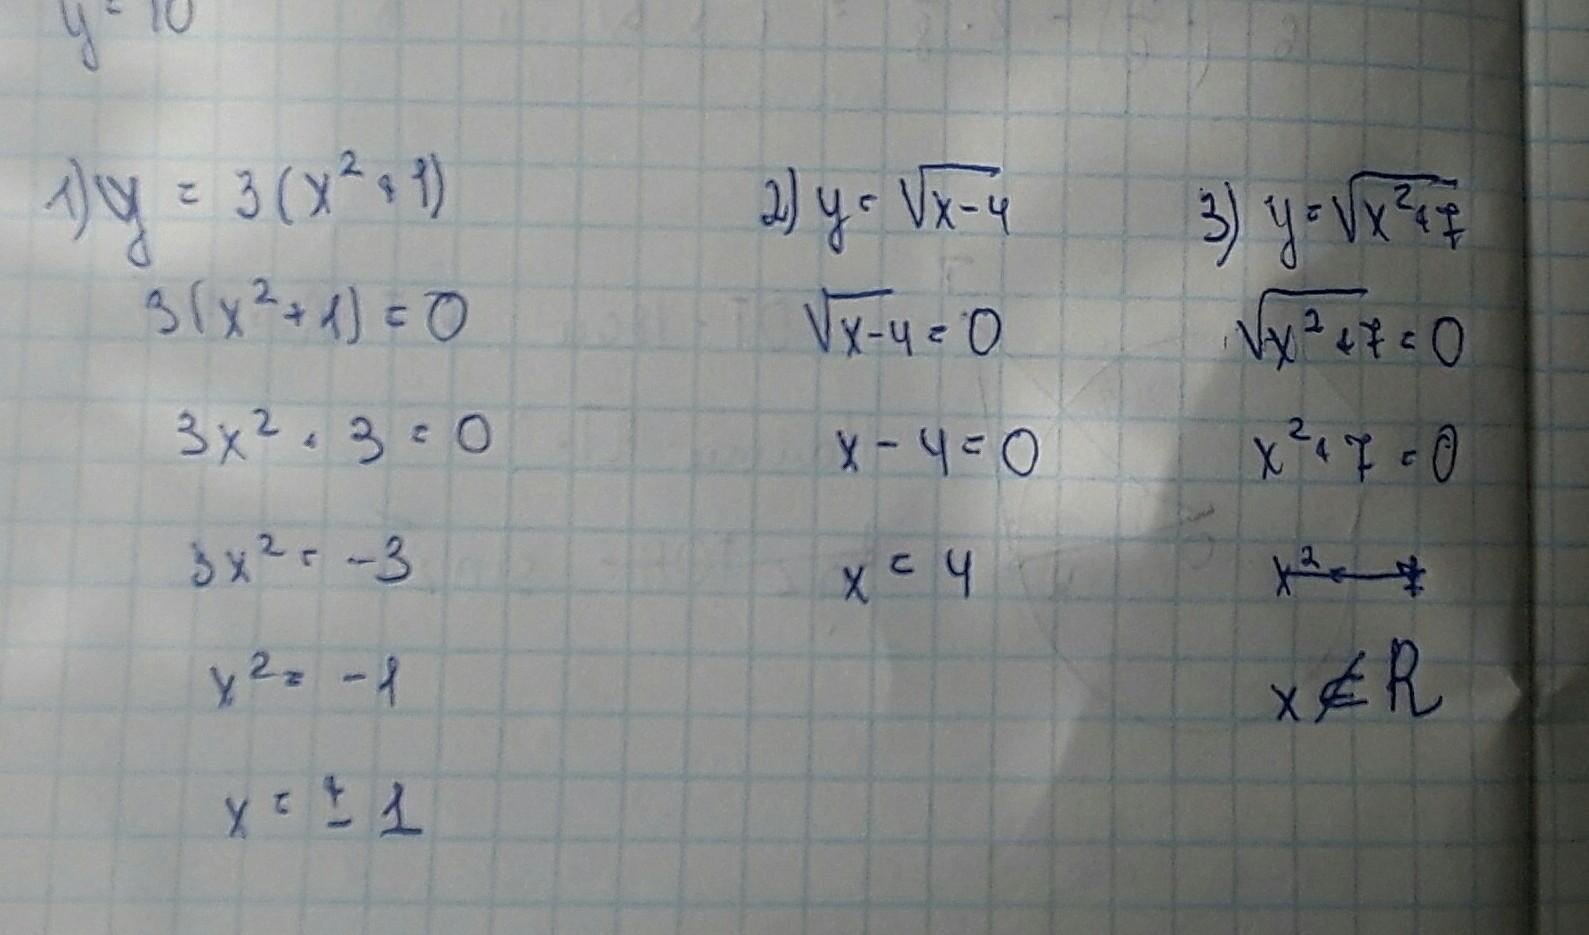 y = 10
1) y = 3(x² + 1)
3(x² + 1) = 0
3x² + 3 = 0
3x² = -3
x² = -1
x = ± 1
2) y = √x-4
√x-4 = 0
x - 4 = 0
x = 4
3) y = √x²+7
√x² + 7 = 0
x² + 7 = 0
x² = -7
x ∉ R